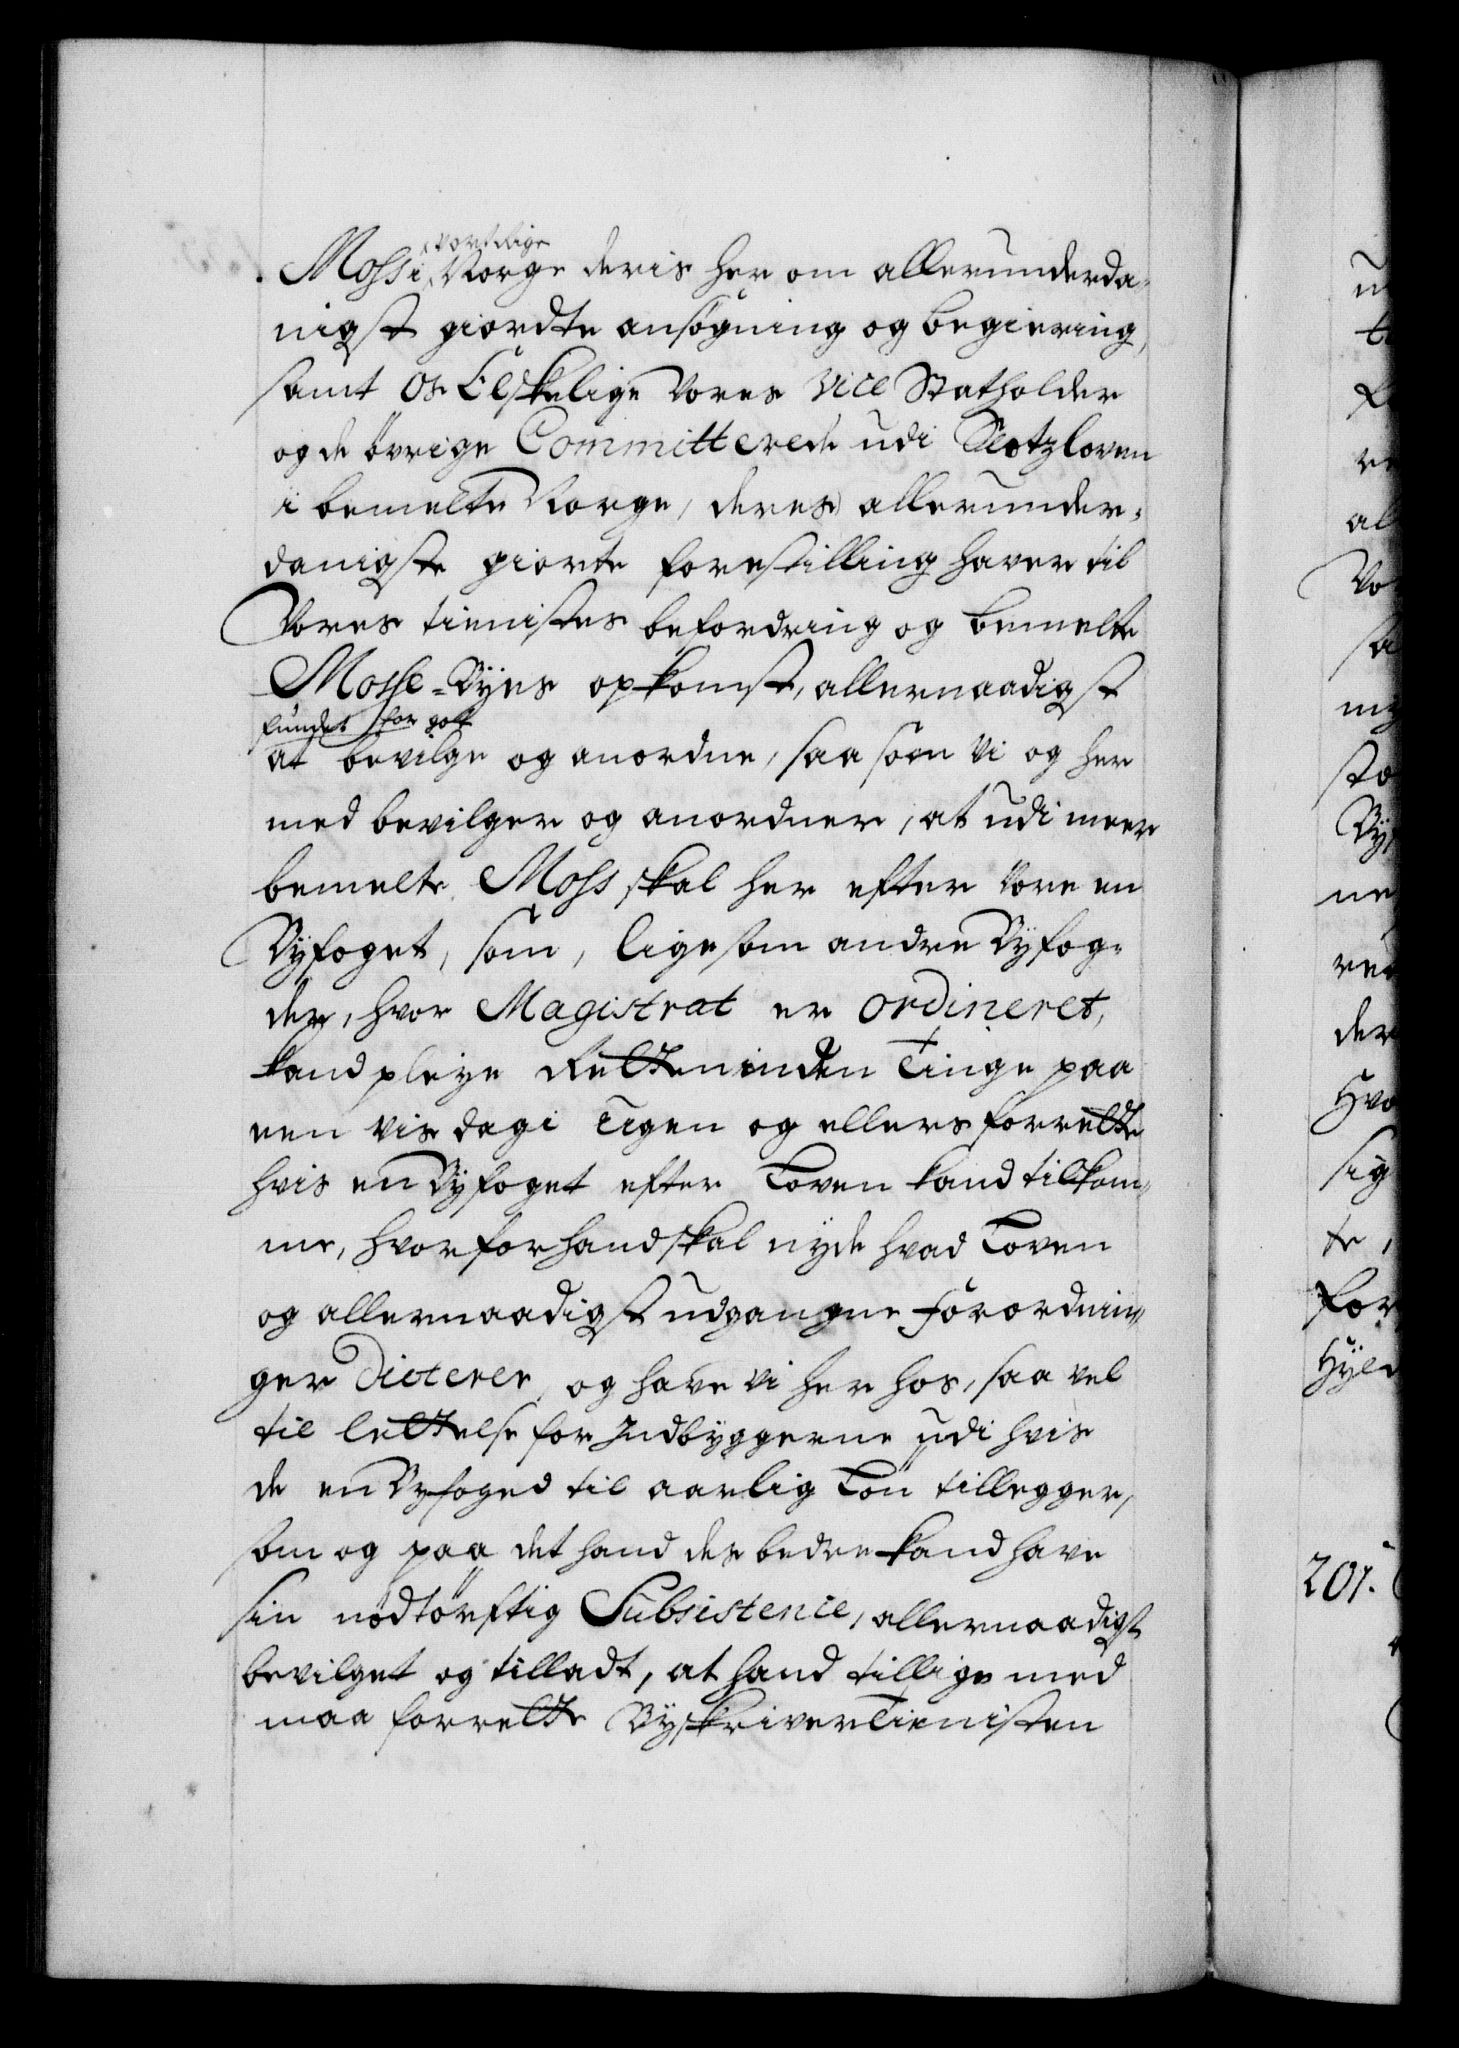 Moss i vort Rige Norge deris her om allerunderda-
nigst giordte ansøgning og begiering,
samt Os Elskelige Vores Vice Statholder
og de övrige Committerede udi Slotzloven
i bemelte Norge, deres allerunder-
danigste giorte forestilling haver til
Vores tienistes befordring og bemelte
Mosse-Byes opkomst, allernaadigst
fundet for got
at bevilge og anordne, saa som Vi og her
med bevilger og anordner, at udi meer
bemelte Moss skal her efter være en
Byfoget, som, ligesom andre Byfog-
der, hvor Magistrat er ordineret,
kand pleye Retten inden Tinge paa
een vis dag i Ugen og ellers forrette
hvis en Byfoget efter Loven kand tilkom-
me, hvorfor hand skal nyde hvad Loven
og allernaadigst udgangne Forordnin-
ger dicterer, og have Vi her hos, saa vel
til lettelse for Indbyggerne udi hvis
de en Byfoged til aarlig Løn tillegger,
som og paa det hand des bedre kand have
sin nødtørftig Subsistence, allernaadigst
bevilget og tilladt, at hand tillige med
maa forrette Byskriver Tienisten
201.